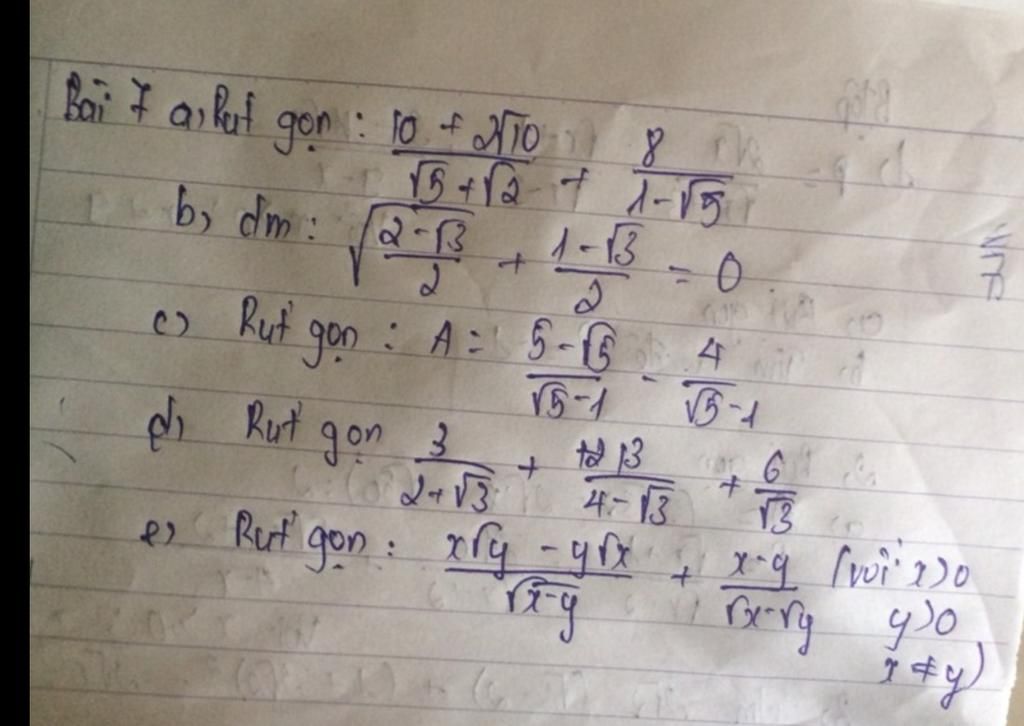 Bài 7 a, Rút gọn : \frac{10 + 2\sqrt{10}}{\sqrt{5} + \sqrt{2}} + \frac{8}{1 - \sqrt{5}}
b, cm : \sqrt{\frac{2 - \sqrt{3}}{2}} + \frac{1 - \sqrt{3}}{2} = 0
c) Rút gọn : A = \frac{5 - \sqrt{5}}{\sqrt{5} - 1} - \frac{4}{\sqrt{5} - 1}
d, Rút gọn \frac{3}{2 + \sqrt{3}} + \frac{13}{4 - \sqrt{3}} + \frac{6}{\sqrt{3}}
e) Rút gọn : \frac{x\sqrt{y} - y\sqrt{x}}{\sqrt{x - y}} + \frac{x - y}{\sqrt{x} - \sqrt{y}} (với x > 0
y > 0
x ≠ y)